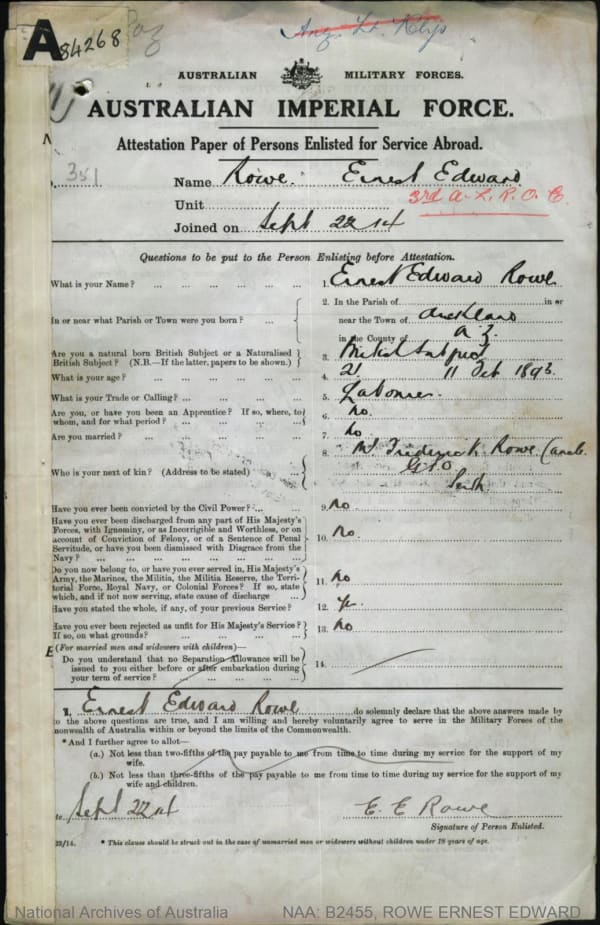 A
84268
AUSTRALIAN MILITARY FORCES.
AUSTRALIAN IMPERIAL FORCE.
Attestation Paper of Persons Enlisted for Service Abroad.
351
Name Rowe. Ernest Edward
3rd A. L. R. O. C.
Unit
Joined on Sept 22 14
Questions to be put to the Person Enlisting before Attestation.
What is your Name? ... ... ... ... ... 1. Ernest Edward Rowe
2. In the Parish of in or
In or near what Parish or Town were you born? ... near the Town of Auckland
in the County of N.Z.
Are you a natural born British Subject or a Naturalised 3. British Subject
British Subject? (N.B.—If the latter, papers to be shown.)
What is your age? ... ... ... ... ... 4. 21 11 Feb 1893.
What is your Trade or Calling? ... ... ... ... 5. Labourer.
Are you, or have you been an Apprentice? If so, where, to 6. No.
whom, and for what period? ... ... ... ...
Are you married? ... ... ... ... ... 7. No
8. Mr Frederick Rowe
Who is your next of kin? (Address to be stated) ... G.P.O
Perth
Have you ever been convicted by the Civil Power? ... ... 9. No
Have you ever been discharged from any part of His Majesty's
Forces, with Ignominy, or as Incorrigible and Worthless, or on
account of Conviction of Felony, or of a Sentence of Penal 10. No.
Servitude, or have you been Dismissed with Disgrace from the
Navy? ... ... ... ... ... ...
Do you now belong to, or have you ever served in, His Majesty's
Army, the Marines, the Militia, the Militia Reserve, the Terri- 11. No
torial Force, Royal Navy, or Colonial Forces? If so, state
which, and if not now serving, state cause of discharge ...
Have you stated the whole, if any, of your previous Service? 12. Yes.
Have you ever been rejected as unfit for His Majesty's Service? 13. No
If so, on what grounds? ... ... ... ...
(For married men and widowers with children)—
Do you understand that no Separation Allowance will be 14.
issued to you either before or after embarkation during
your term of service? ... ... ... ...
I, Ernest Edward Rowe do solemnly declare that the above answers made by
to the above questions are true, and I am willing and hereby voluntarily agree to serve in the Military Forces of the
nonwealth of Australia within or beyond the limits of the Commonwealth.
* And I further agree to allot—
(a.) Not less than two-fifths of the pay payable to me from time to time during my service for the support of my
wife.
(b.) Not less than three-fifths of the pay payable to me from time to time during my service for the support of my
wife and children.
te Sept 22 14 E. E Rowe
Signature of Person Enlisted.
22/14. * This clause should be struck out in the case of unmarried men or widowers without children under 18 years of age.
National Archives of Australia NAA: B2455, ROWE ERNEST EDWARD